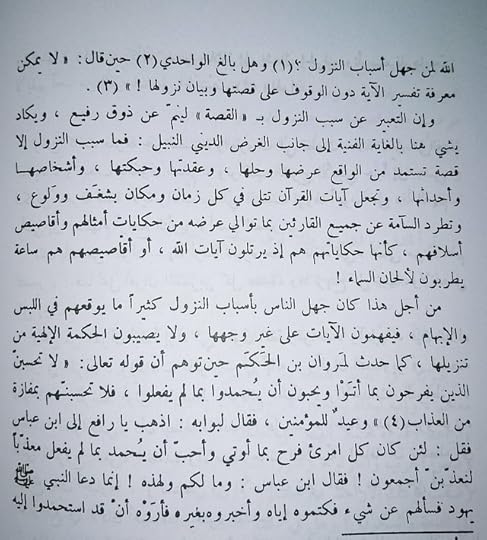 الله لمن جهل أسباب النزول ؟(١) وهل بالغ الواحدي(٢) حين قال : « لا يمكن
معرفة تفسير الآية دون الوقوف على قصتها وبيان نزولها ! » (٣) .
وإن التعبير عن سبب النزول بـ « القصة » لينمّ عن ذوق رفيع ، ويكاد
يشي هنا بالغاية الفنية إلى جانب الغرض الديني النبيل : فما سبب النزول إلا
قصة تستمد من الواقع عرضها وحلها ، وعقدتها وحبكتها ، وأشخاصها
وأحداثها ، وتجعل آيات القرآن تتلى في كل زمان ومكان بشغَف وولوع ،
وتطرد السآمة عن جميع القارئين بما توالي عرضه من حكايات أمثالهم وأقاصيص
أسلافهم ، كأنها حكاياتهم هم إذ يرتلون آيات الله ، أو أقاصيصهم هم ساعة
يطربون لألحان السماء !
من أجل هذا كان جهل الناس بأسباب النزول كثيراً ما يوقعهم في اللبس
والإبهام ، فيفهمون الآيات على غير وجهها ، ولا يصيبون الحكمة الإلهية من
تنزيلها ، كما حدث لمَروان بن الحَكَم حين توهم أن قوله تعالى : « لا تحسبنّ
الذين يفرحون بما أتَوْا ويحبون أن يُحمدوا بما لم يفعلوا ، فلا تحسبنّهم بمفازة
من العذاب(٤) » وعيدٌ للمؤمنين ، فقال لبوابه : اذهب يا رافع إلى ابن عباس
فقل : لئن كان كل امرئ فرح بما أوتي وأحبّ أن يُحمد بما لم يفعل معذّباً
لنعذّبنّ أجمعون ! فقال ابن عباس : وما لكم ولهذه ! إنما دعا النبي ﷺ
يهود فسألهم عن شيء فكتموه إياه وأخبروه بغيره فأرَوْه أنْ قد استحمدوا إليه